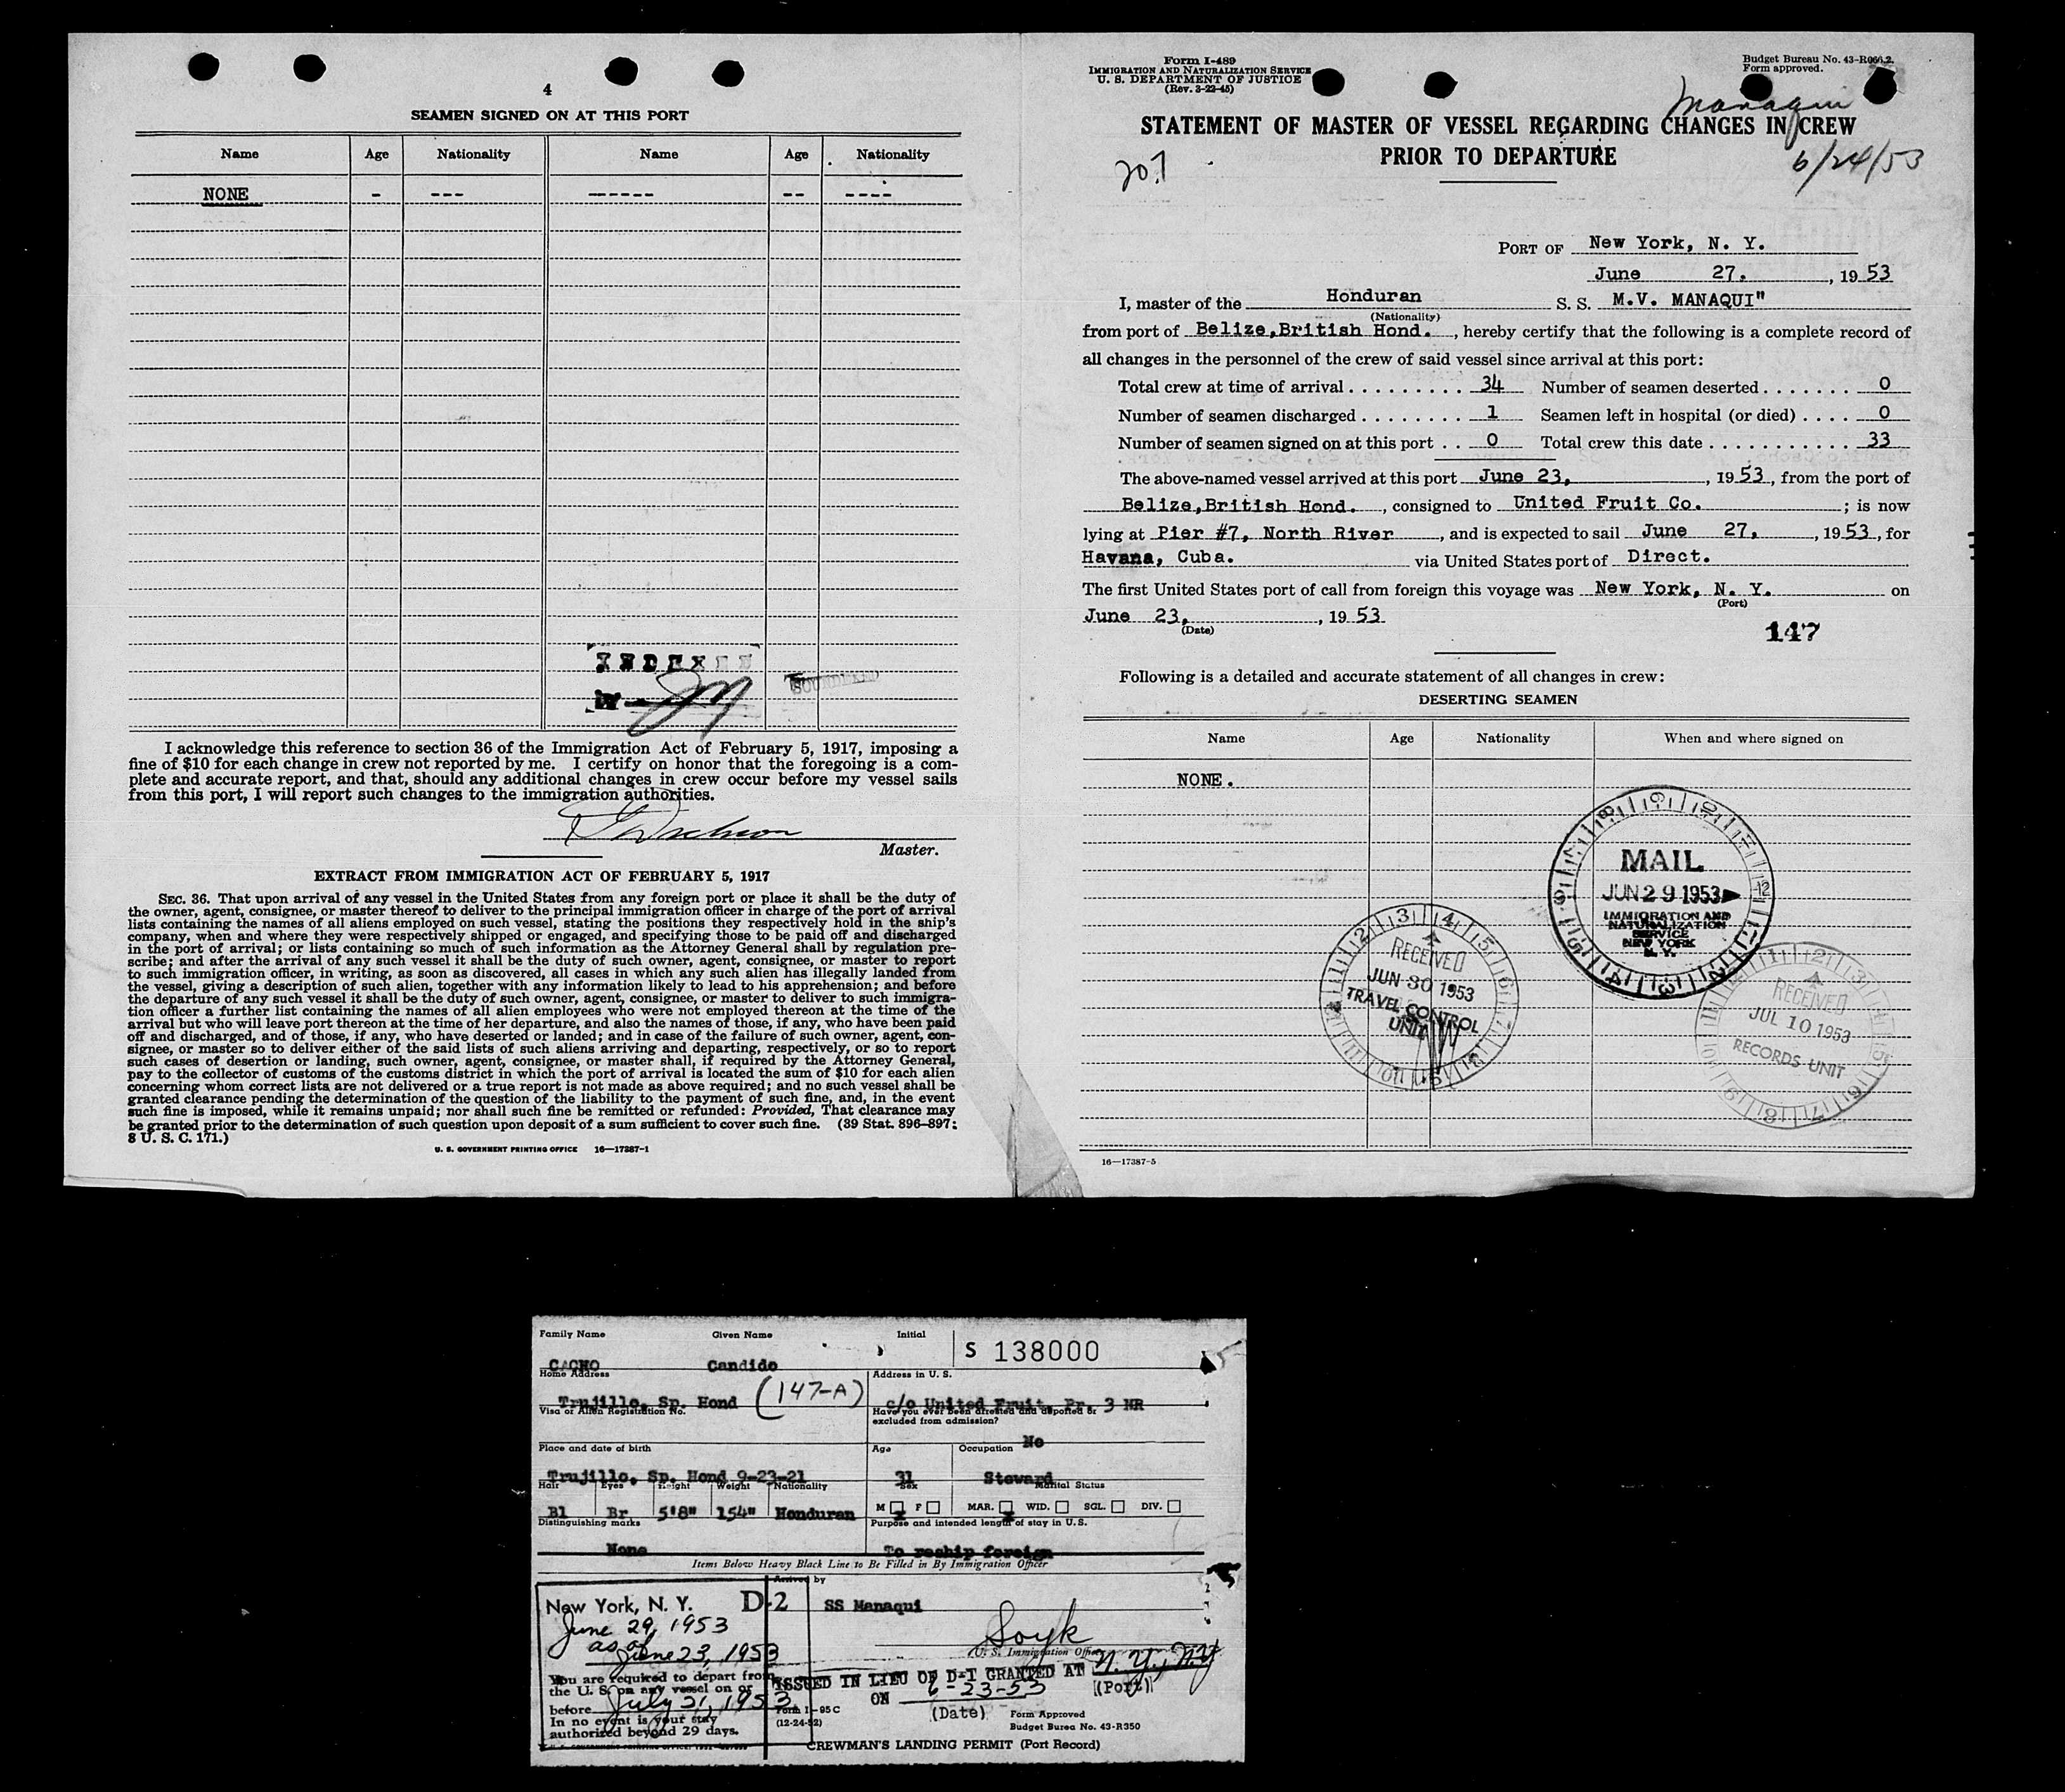 4
SEAMEN SIGNED ON AT THIS PORT
Name Age Nationality Name Age Nationality
NONE - --- ------ -- ----
INDEXED
SOUNDEXED
I acknowledge this reference to section 36 of the Immigration Act of February 5, 1917, imposing a
fine of $10 for each change in crew not reported by me. I certify on honor that the foregoing is a com-
plete and accurate report, and that, should any additional changes in crew occur before my vessel sails
from this port, I will report such changes to the immigration authorities.
Master.
EXTRACT FROM IMMIGRATION ACT OF FEBRUARY 5, 1917
SEC. 36. That upon arrival of any vessel in the United States from any foreign port or place it shall be the duty of
the owner, agent, consignee, or master thereof to deliver to the principal immigration officer in charge of the port of arrival
lists containing the names of all aliens employed on such vessel, stating the positions they respectively hold in the ship's
company, when and where they were respectively shipped or engaged, and specifying those to be paid off and discharged
in the port of arrival; or lists containing so much of such information as the Attorney General shall by regulation pre-
scribe; and after the arrival of any such vessel it shall be the duty of such owner, agent, consignee, or master to report
to such immigration officer, in writing, as soon as discovered, all cases in which any such alien has illegally landed from
the vessel, giving a description of such alien, together with any information likely to lead to his apprehension; and before
the departure of any such vessel it shall be the duty of such owner, agent, consignee, or master to deliver to such immigra-
tion officer a further list containing the names of all alien employees who were not employed thereon at the time of the
arrival but who will leave port thereon at the time of her departure, and also the names of those, if any, who have been paid
off and discharged, and of those, if any, who have deserted or landed; and in case of the failure of such owner, agent, con-
signee, or master so to deliver either of the said lists of such aliens arriving and departing, respectively, or so to report
such cases of desertion or landing, such owner, agent, consignee, or master shall, if required by the Attorney General,
pay to the collector of customs of the customs district in which the port of arrival is located the sum of $10 for each alien
concerning whom correct lists are not delivered or a true report is not made as above required; and no such vessel shall be
granted clearance pending the determination of the question of the liability to the payment of such fine, and, in the event
such fine is imposed, while it remains unpaid; nor shall such fine be remitted or refunded: Provided, That clearance may
be granted prior to the determination of such question upon deposit of a sum sufficient to cover such fine. (39 Stat. 896-897;
8 U. S. C. 171.)
U. S. GOVERNMENT PRINTING OFFICE 16—17387-1
Form I-489
IMMIGRATION AND NATURALIZATION SERVICE
U. S. DEPARTMENT OF JUSTICE
(Rev. 3-22-45)
Budget Bureau No. 43-R066.2.
Form approved.
Manaqui
STATEMENT OF MASTER OF VESSEL REGARDING CHANGES IN CREW
PRIOR TO DEPARTURE
207
6/24/53
PORT OF New York, N. Y.
June 27. , 19 53
I, master of the Honduran S. S. M.V. MANAQUI"
(Nationality)
from port of Belize,British Hond. , hereby certify that the following is a complete record of
all changes in the personnel of the crew of said vessel since arrival at this port:
Total crew at time of arrival . . . . . . . . . 34 Number of seamen deserted . . . . . . . 0
Number of seamen discharged . . . . . . . . 1 Seamen left in hospital (or died) . . . . 0
Number of seamen signed on at this port . . 0 Total crew this date . . . . . . . . . . . 33
The above-named vessel arrived at this port June 23, , 19 53, from the port of
Belize,British Hond. , consigned to United Fruit Co. ; is now
lying at Pier #7, North River , and is expected to sail June 27, , 19 53, for
Havana, Cuba. via United States port of Direct.
The first United States port of call from foreign this voyage was New York, N. Y. on
(Port)
June 23, , 19 53
(Date)
147
Following is a detailed and accurate statement of all changes in crew:
DESERTING SEAMEN
Name Age Nationality When and where signed on
NONE.
MAIL
JUN 29 1953
IMMIGRATION AND
NATURALIZATION
SERVICE
NEW YORK
N. Y.
RECEIVED
JUN 30 1953
TRAVEL CONTROL
UNIT
RECEIVED
JUL 10 1953
RECORDS UNIT
16—17387-5
Family Name Given Name Initial S 138000
CACHO Candido
Home Address Address in U. S.
Trujillo, Sp. Hond (147-A) c/o United Fruit, Pr. 3 NR
Visa or Alien Registration No. Have you ever been arrested and deported or
excluded from admission?
No
Place and date of birth Age Occupation
Trujillo, Sp. Hond 9-23-21 31 Steward
Hair Eyes Height Weight Nationality Sex Marital Status
Bl Br 5'8" 154" Honduran M F MAR. WID. SGL. DIV.
Distinguishing marks Purpose and intended length of stay in U.S.
None To reship foreign
Items Below Heavy Black Line to Be Filled in By Immigration Officer
Arrived by
New York, N. Y. D-2 SS Manaqui
June 29, 1953
as of
June 23, 1953
Soyk
U. S. Immigration Officer
You are required to depart from
the U. S. on any vessel on or
before July 21, 1953
In no event is your stay
authorized beyond 29 days.
ISSUED IN LIEU OF D-1 GRANTED AT N. Y., N.Y
(Port)
ON 6-23-53
(Date)
Form I-95C
(12-24-52)
Form Approved
Budget Burea No. 43-R350
CREWMAN'S LANDING PERMIT (Port Record)